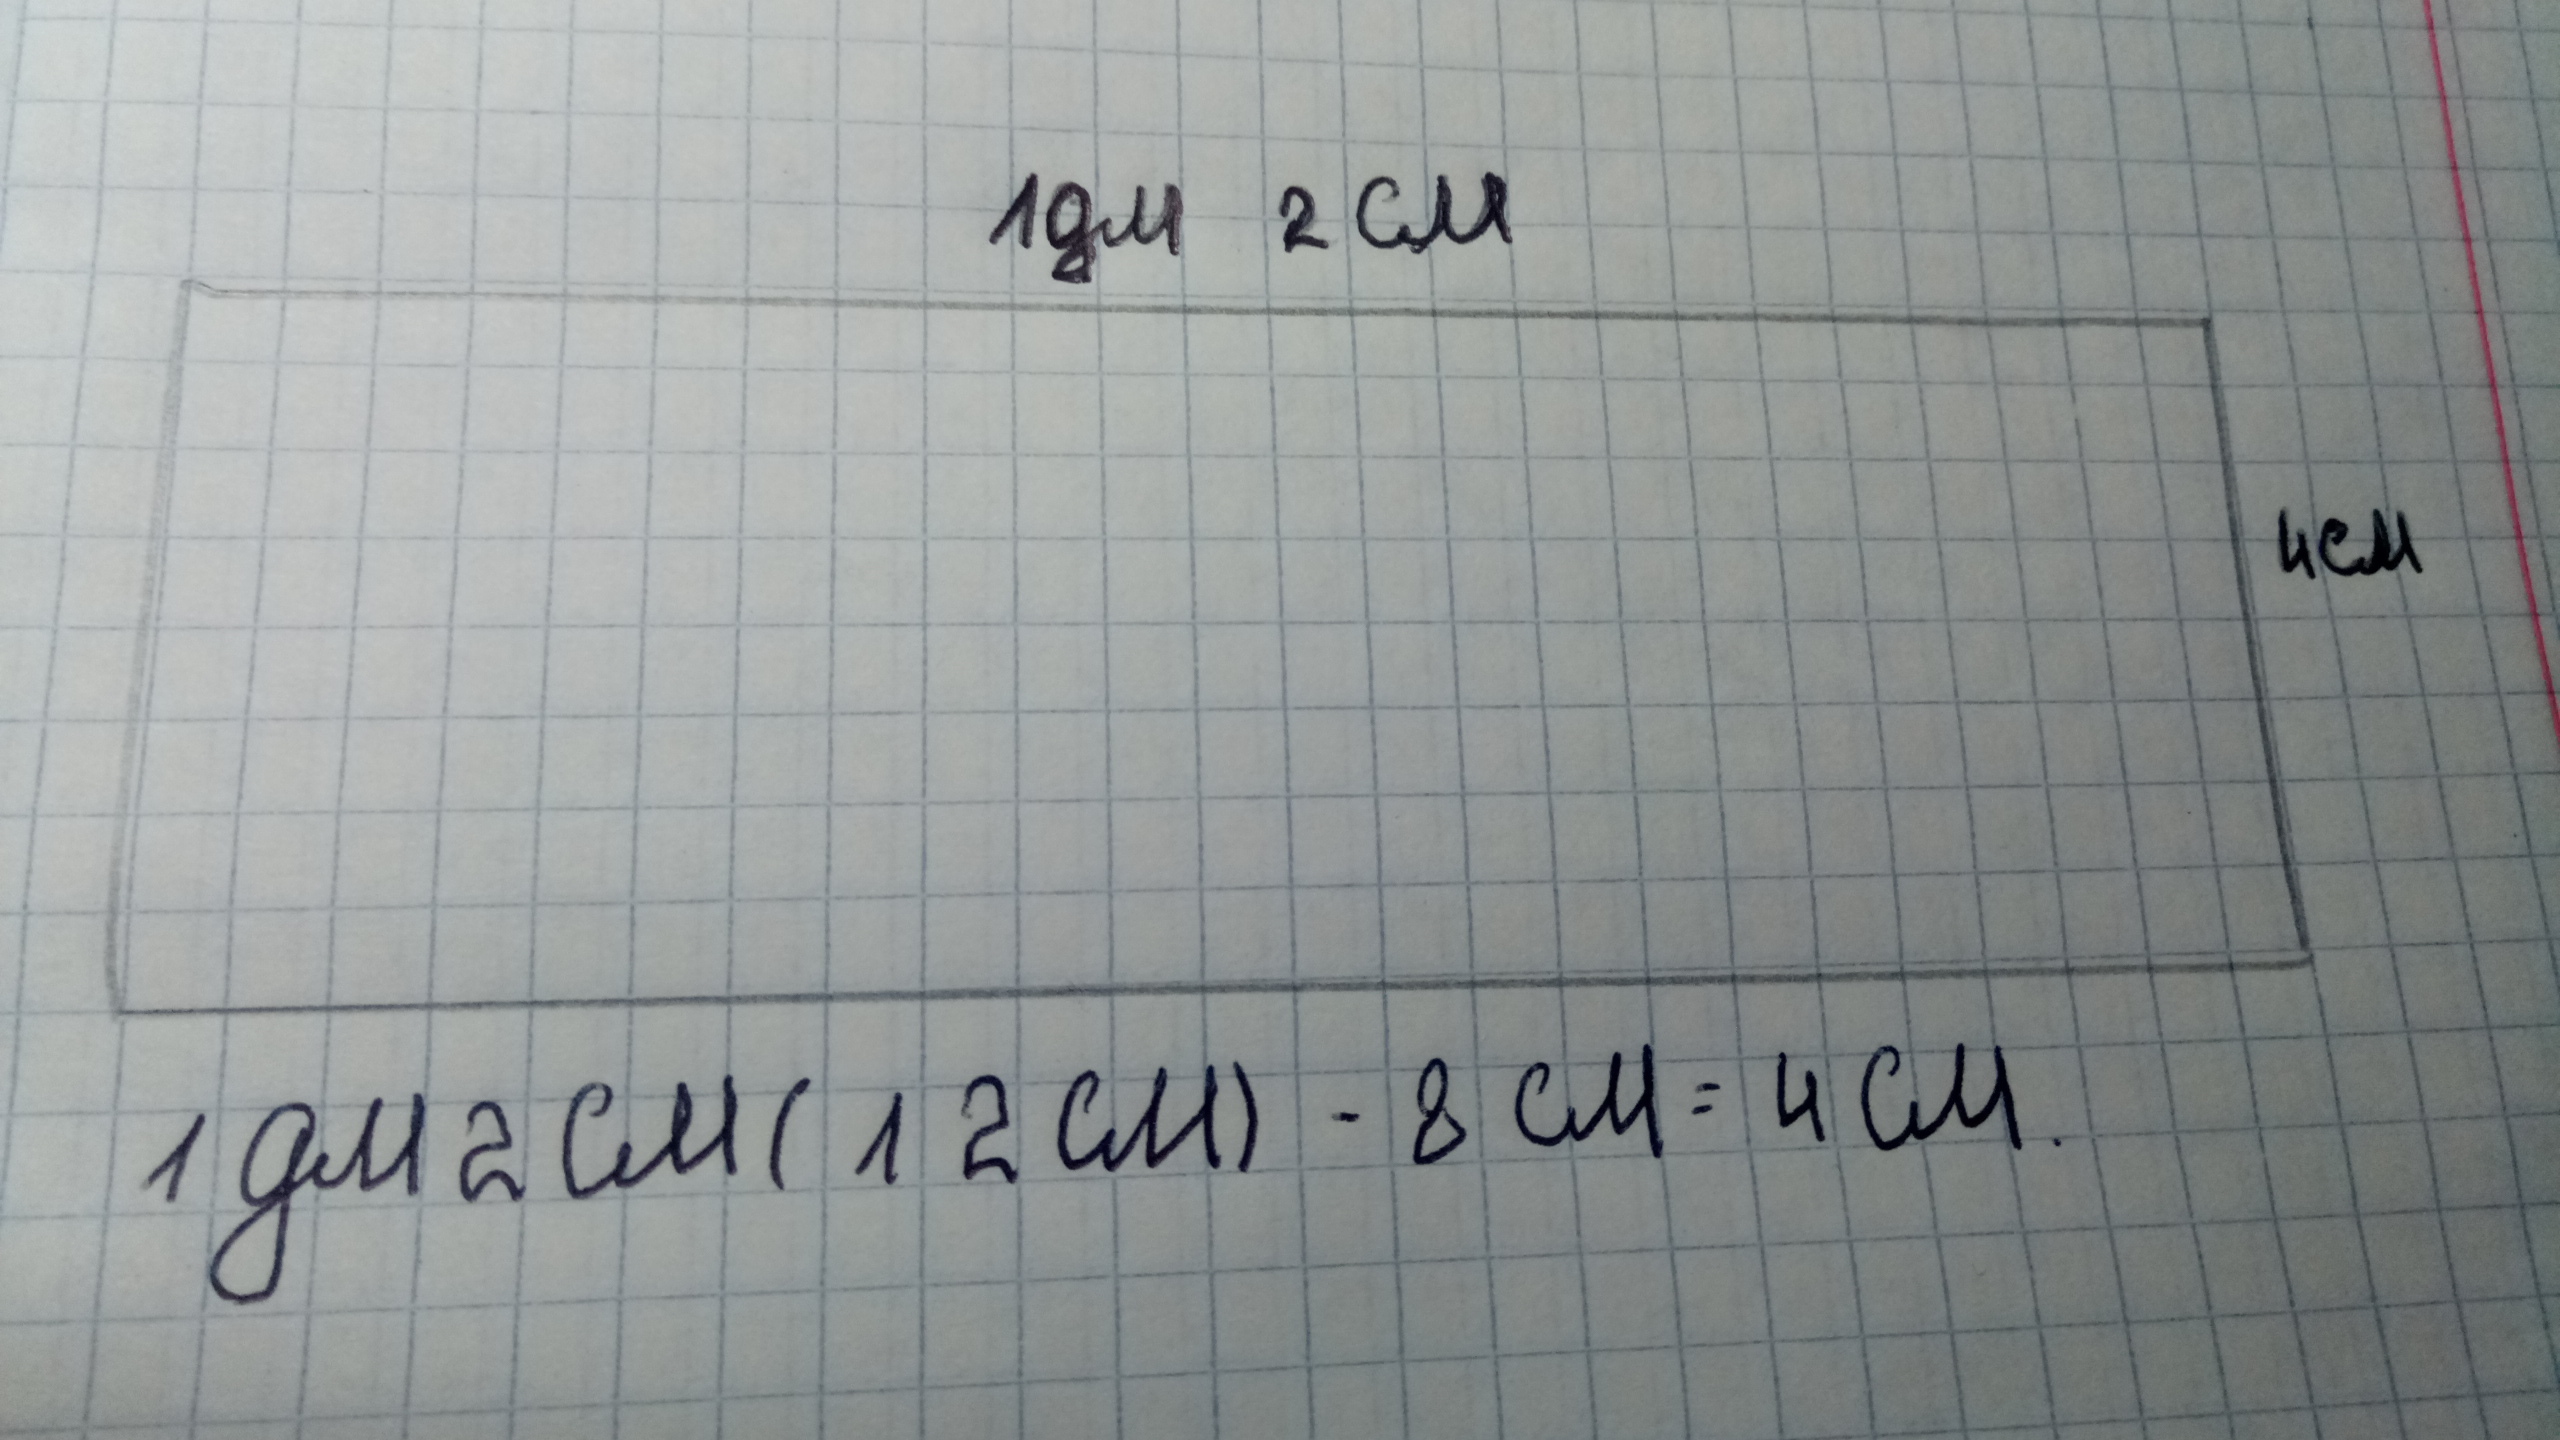 1дм 2см
4см
1дм2см(12см) - 8см=4см.